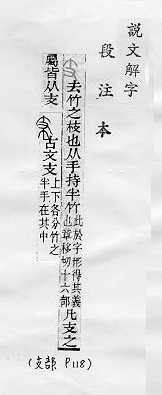 說文解字
段注本
去竹之枝也从手持半竹
此於字形得其義
也章移切十六部
凡支之
屬皆从支
古文支
上下各分竹之
半手在其中
(支部 P118)